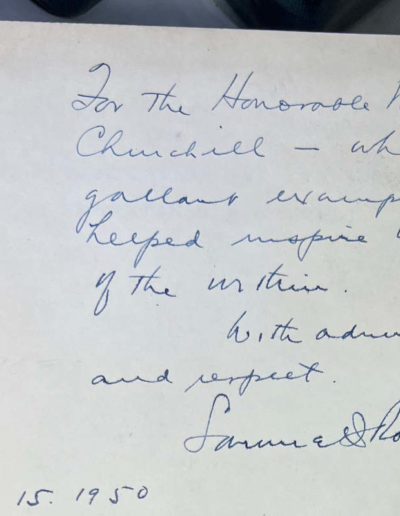 For the Honorable
Churchill – wh
gallant examp
helped inspire
of the within.
With admi
and respect.
Samuel I Ro
15. 1950